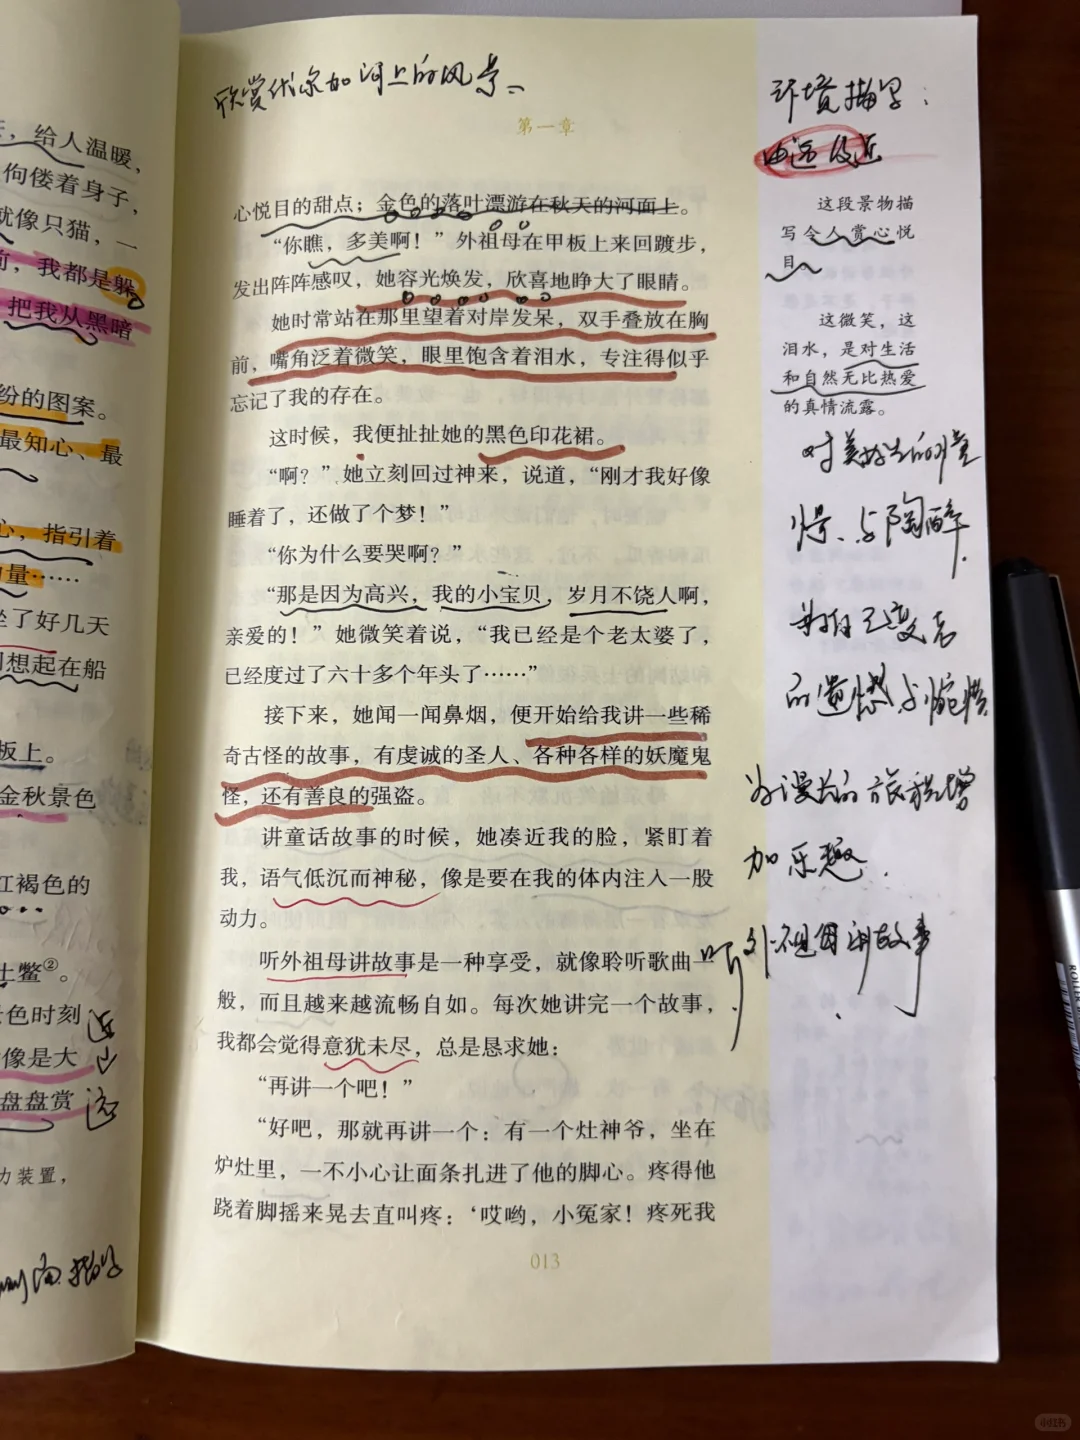 ，给人温暖，
佝偻着身子，
就像只猫，一
前，我都是躲
把我从黑暗
纷的图案。
最知心、最
心，指引着
量……
坐了好几天
想起在船
板上。
金秋景色
红褐色的
土鳖②。
色时刻
像是大
盘盘赏
力装置，
近
远
描写
欣赏伏尔加河上的风景。
第一章
心悦目的甜点；金色的落叶漂游在秋天的河面上。
“你瞧，多美啊！”外祖母在甲板上来回踱步，
发出阵阵感叹，她容光焕发，欣喜地睁大了眼睛。
她时常站在那里望着对岸发呆，双手叠放在胸
前，嘴角泛着微笑，眼里饱含着泪水，专注得似乎
忘记了我的存在。
这时候，我便扯扯她的黑色印花裙。
“啊？”她立刻回过神来，说道，“刚才我好像
睡着了，还做了个梦！”
“你为什么要哭啊？”
“那是因为高兴，我的小宝贝，岁月不饶人啊，
亲爱的！”她微笑着说，“我已经是个老太婆了，
已经度过了六十多个年头了……”
接下来，她闻一闻鼻烟，便开始给我讲一些稀
奇古怪的故事，有虔诚的圣人、各种各样的妖魔鬼
怪，还有善良的强盗。
讲童话故事的时候，她凑近我的脸，紧盯着
我，语气低沉而神秘，像是要在我的体内注入一股
动力。
听外祖母讲故事是一种享受，就像聆听歌曲一
般，而且越来越流畅自如。每次她讲完一个故事，
我都会觉得意犹未尽，总是恳求她：
“再讲一个吧！”
“好吧，那就再讲一个：有一个灶神爷，坐在
炉灶里，一不小心让面条扎进了他的脚心。疼得他
跷着脚摇来晃去直叫疼：‘哎哟，小冤家！疼死我
013
环境描写：
由远及近
这段景物描
写令人赏心悦
目。
这微笑，这
泪水，是对生活
和自然无比热爱
的真情流露。
对美好生活的憧
憬、与陶醉.
对自己变老
的遗憾与惋惜
为漫长的旅程增
加乐趣.
听外祖母讲故事